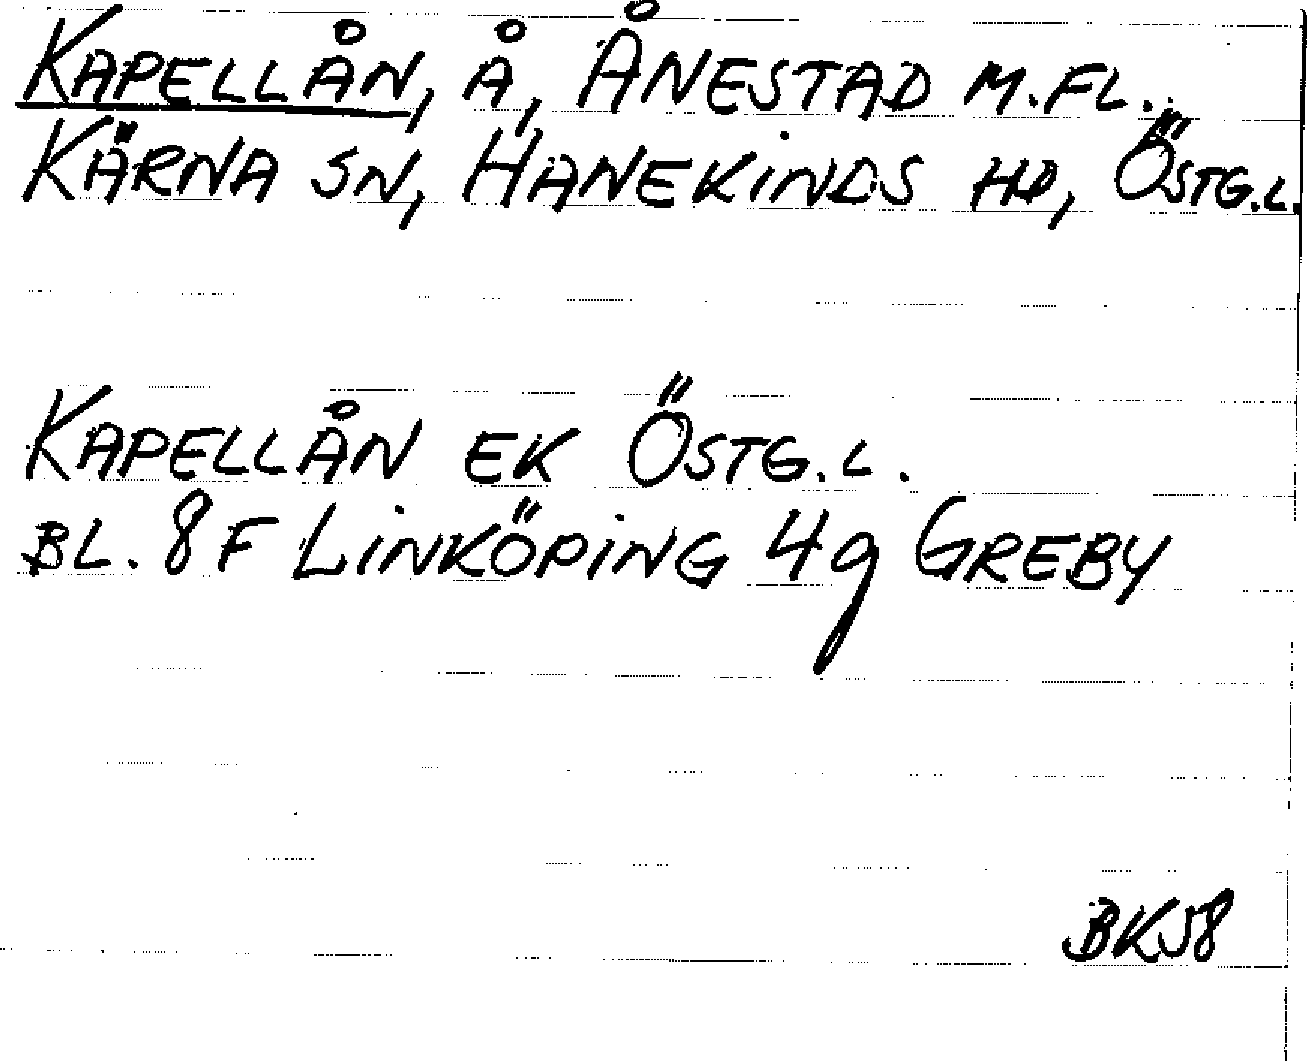 KAPELLÅN, Å, ÅNESTAD M.FL.
KÄRNA SN, HANEKINDS HD, ÖSTG.L.
KAPELLÅN EK ÖSTG.L.
BL. 8F LINKÖPING 4g GREBY
BK58